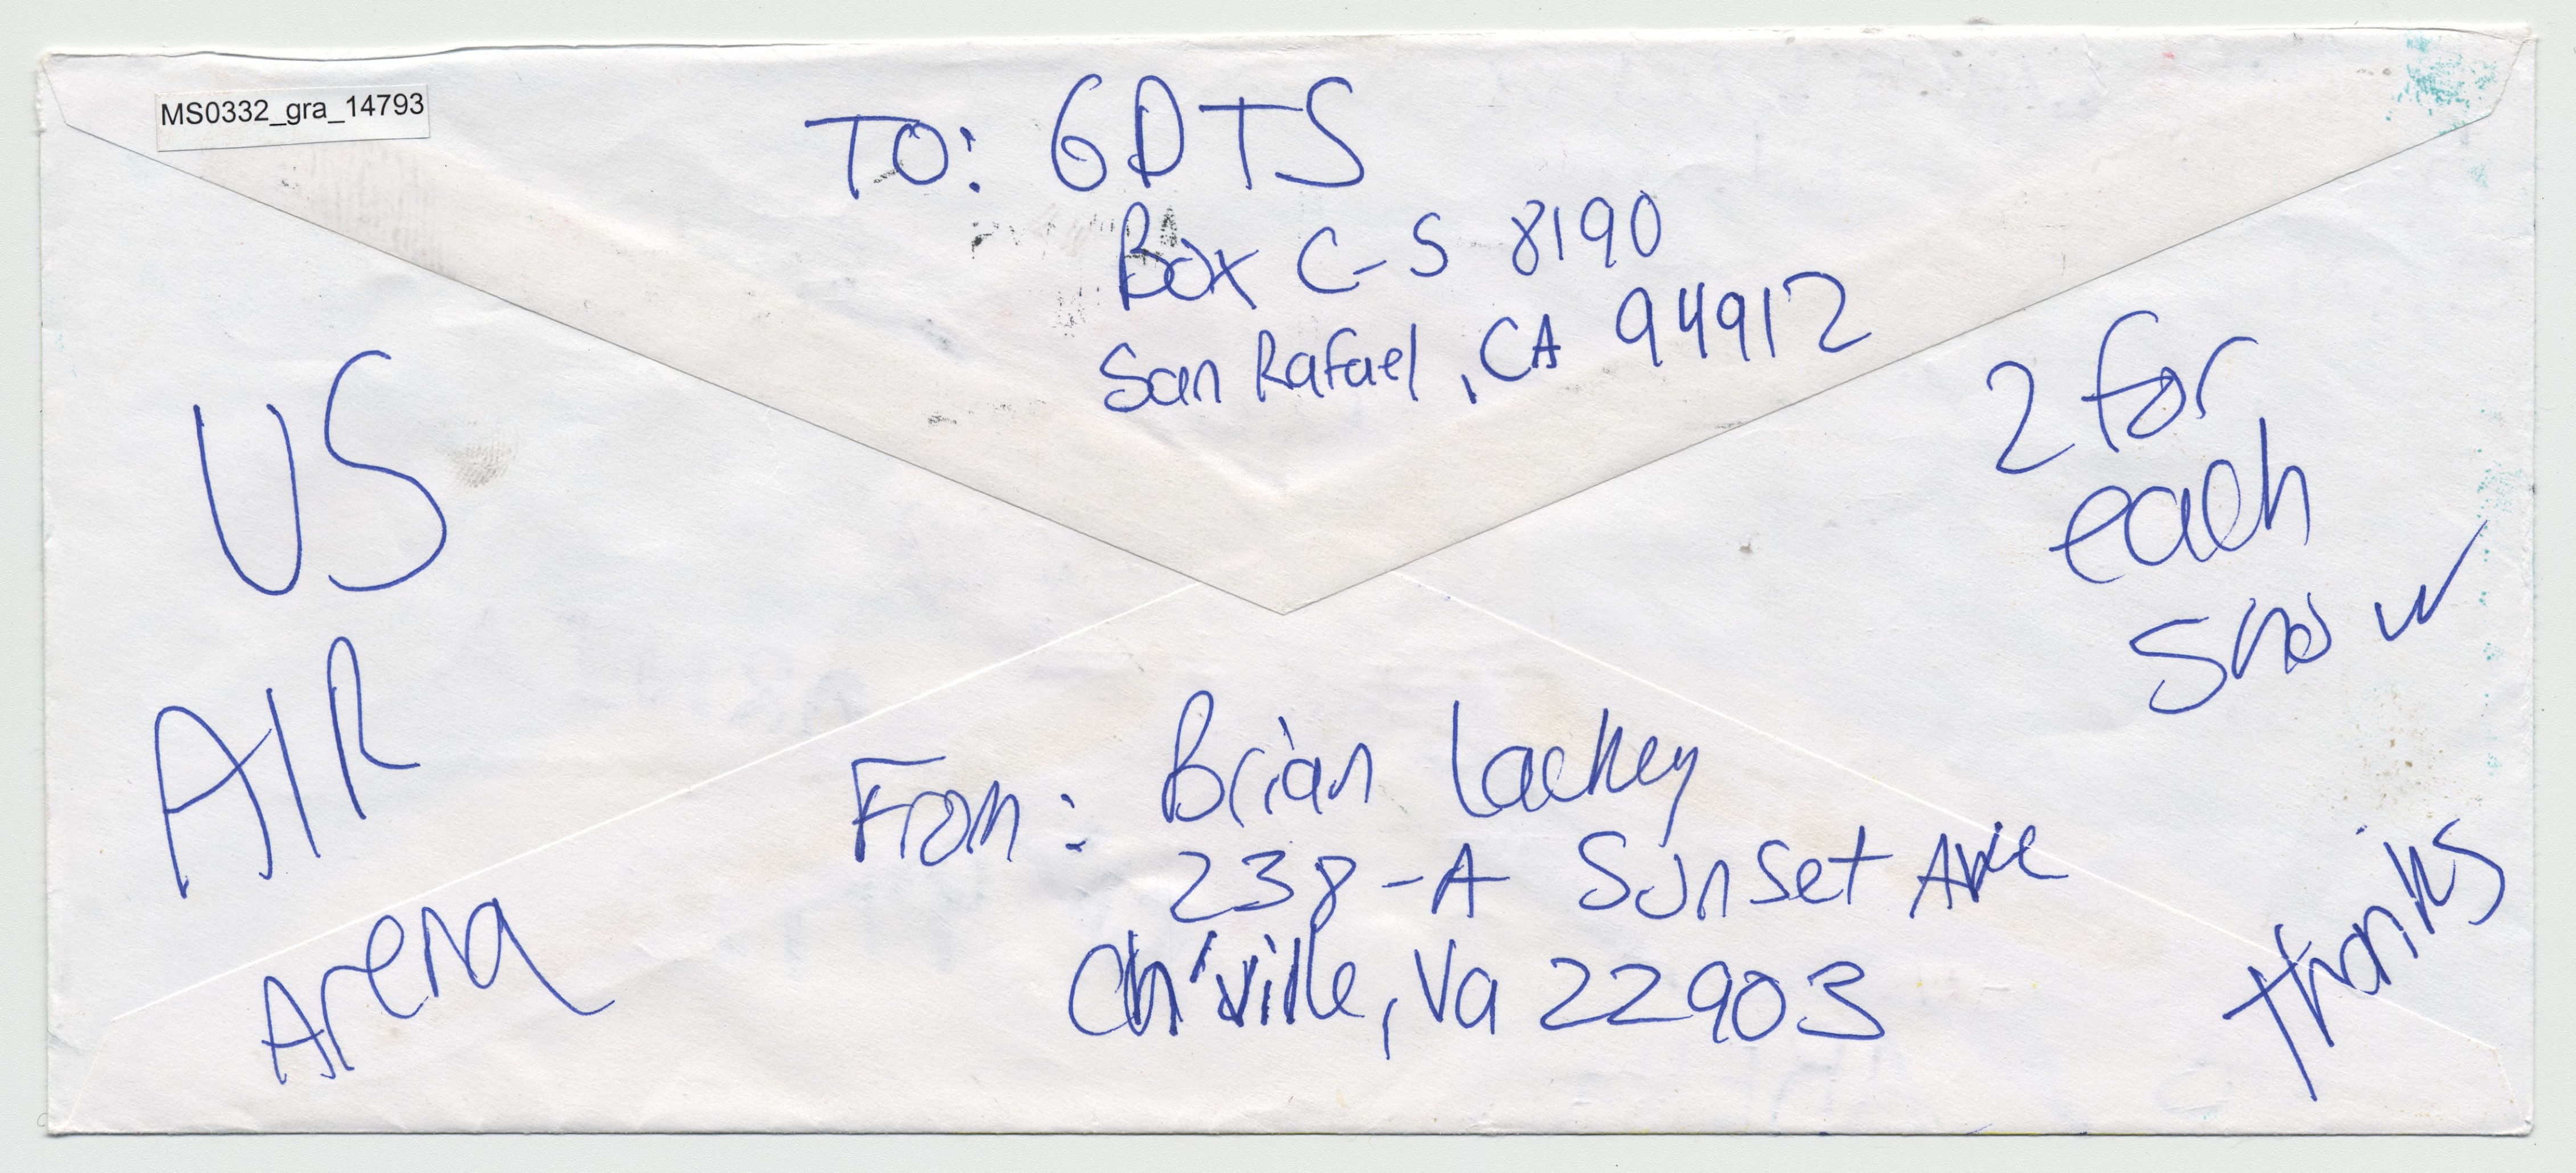 MS0332_gra_14793
TO: GDTS
Box C-S 8190
San Rafael, CA 94912
US
AIR
Arena
2 for
each
show
From: Brian Lackey
238-A Sunset Ave
Ch'ville, Va 22903
thanks